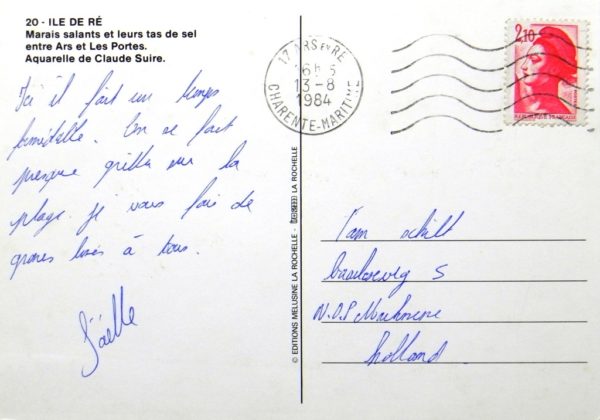 20 - ILE DE RÉ
Marais salants et leurs tas de sel
entre Ars et Les Portes.
Aquarelle de Claude Suire.
Ici il fait un temps
formidable. On se fait
presque griller sur la
plage. je vous fais de
groses bises à tous.
Gaëlle
17 ARS EN RÉ
16h 5
13-8
1984
CHARENTE-MARITIME
2,10
REPUBLIQUE FRANÇAISE
© EDITIONS MELUSINE LA ROCHELLE - LA ROCHELLE
Tam schilt
5
N.O.P
Holland